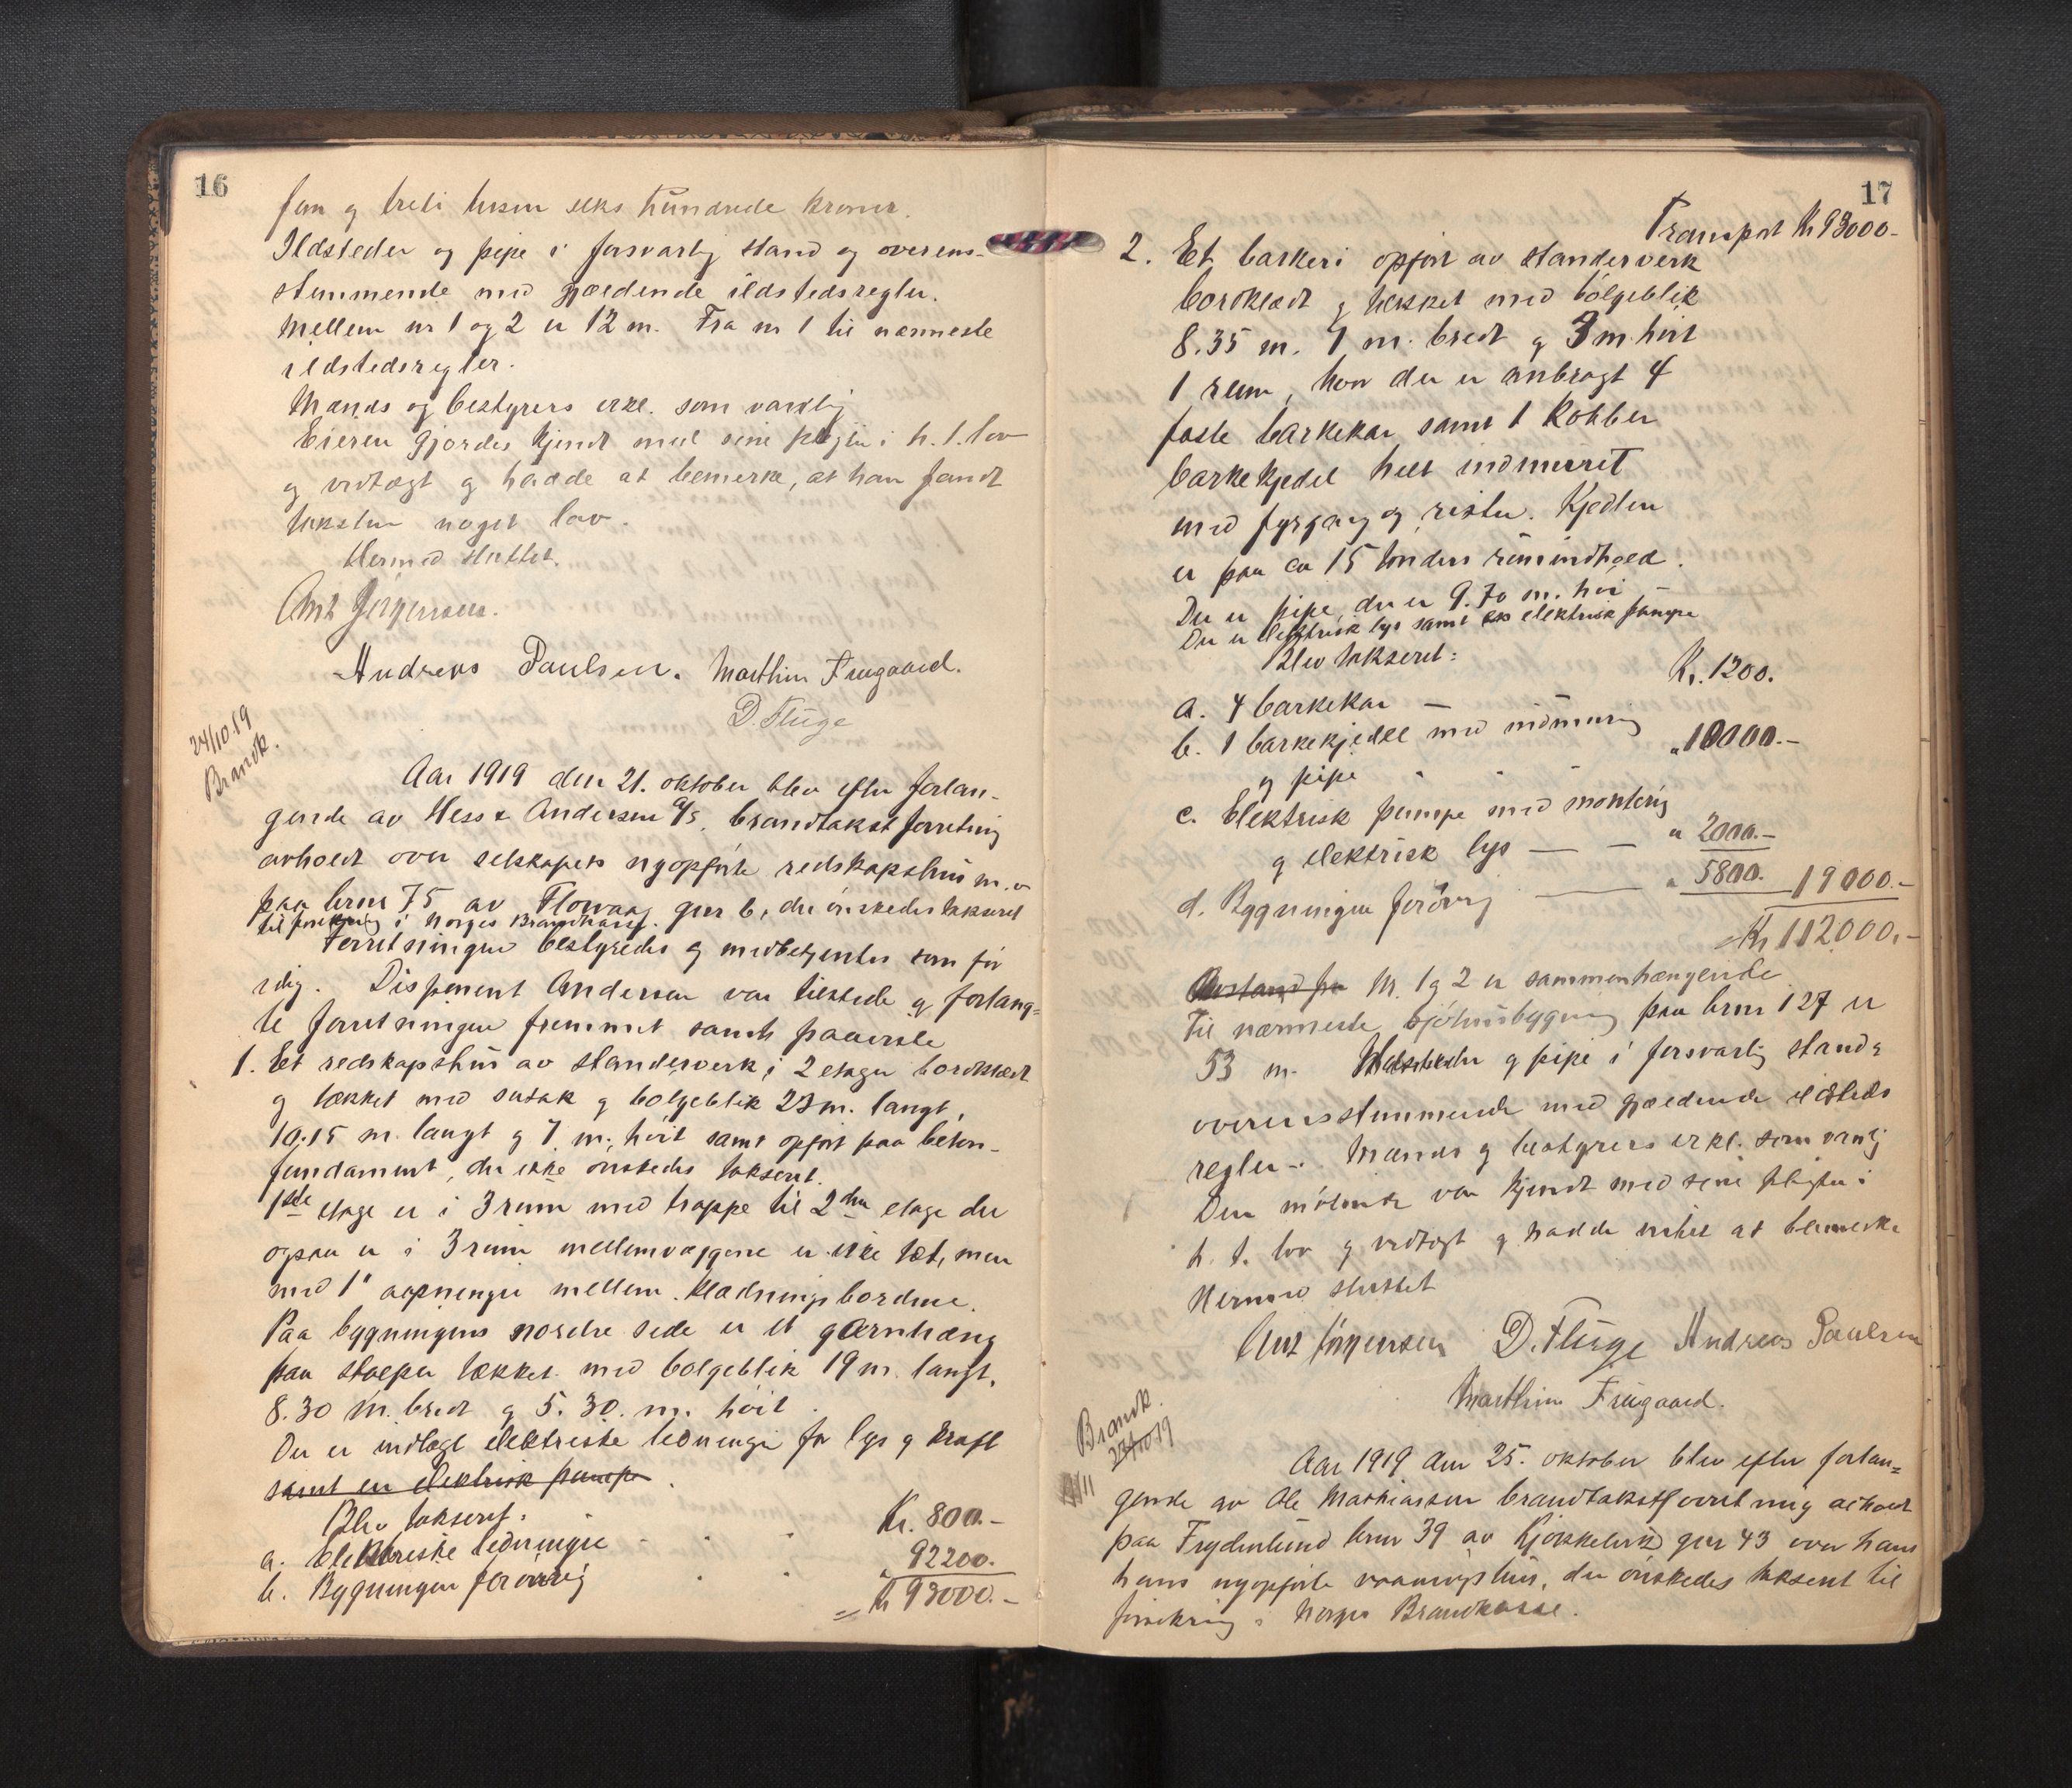 16
fem og treti tusen seks hundrede kroner.
Ildsteder og pipe i forsvarlig stand og overens-
stemmende med gjældende ildstedsregler.
Mellem nr 1 og 2 er 12 m. Fra nr 1 til nærmeste
ildstedsregler.
Mænds og bestyrers erkl. som vanlig
Eieren gjordes kjendt med sine pligter i h. t. lov
og vedtægt og hadde at bemerke, at han fandt
taksten noget lav.
Hermed sluttet.
Amt Jørgensen.
Andreas Paulsen. Marthin Frugaard.
D. Fluge
24/10.19
Brandk.
Aar 1919 den 21. oktober blev efter forlan-
gende av Hess & Andersen A/S, brandtakstforretning
avholdt over selskapets nyopførte redskapshus m. v
paa brnr 75 av Florvaag gnr 6, der ønskedes taksert
til forsikring i Norges Brandkasse.
Forretningen bestyredes og medbetjentes som før
idag. Disponent Andersen var tilstede og forlang=
te forretningen fremmet samt paaviste
1. Et redskapshus av standerverk i 2 etager bordklædt
og tækket med sutak og bølgeblik 23 m. langt,
10.15 m. langt og 7 m. høit samt opført paa beton-
fundament, der ikke ønskedes taksert.
1ste etage er i 3 rum med trappe til 2den etage der
ogsaa er i 3 rum mellemvæggene er ikke tæt, men
med 1" aapninger mellem klædningsbordene.
Paa bygningens nordre side er et garnhæng
paa stolper tækket med bølgeblik 19 m. langt,
8.30 m. bredt og 5.30. m. høit.
Der er indlagt elektriske ledninger for lys og kraft
samt en elektrisk pumpe.
Blev taksert:
a. Elektriske ledninger - - - Kr. 800.-
b. Bygningen forøvrig - - " 92200.
= Kr 93000.-
17
Transport Kr 93000-
2. Et barkeri opført av standerverk
bordklædt og tækket med bølgeblik
8.35 m. 7 m. bredt og 3 m. høit
1 rum, hvor der er anbragt 4
faste barkekar samt 1 kobber
barkekjedel helt indmuret
med fyrgang og rister. Kjedlen
er paa ca 15 tønders rumindhold.
Der er pipe der er 9.70 m. høi -
Der er elektrisk lys samt en elektrisk pumpe
Blev taksert:
a. 4 barkekar - Kr. 1200.
b. 1 barkekjedel med indmuring
og pipe - - - " 10000.-
c. Elektrisk pumpe med montering
og elektrisk lys - - " 2000.-
d. Bygningen forøvrig - " 5800. 19000.-
Kr 112000.-
Avstand fra Nr. 1 og 2 er sammenhængende
Til nærmeste sjøhusbygning paa brnr 127 er
53 m. Ildsteder og pipe i forsvarlig stand og
overensstemmende med gjældende ildsteds
regler.. Mænds og bestyrers erkl. som vanlig
Den møtende var kjendt med sine pligter i
h. t. lov og vedtægt og hadde intet at bemerke
Hermed sluttet
Amt Jørgensen D. Fluge Andreas Paulsen
Marthin Frugaard.
Brandk.
27/10 19
/11
Aar 1919 den 25. oktober blev efter forlan=
gende av Ole Mathiassen brandtakstforretning avholdt
paa Frydenlund brnr 39 av Kjøkkelvik gnr 43 over hans
hans nyopførte vaaningshus, der ønskedes taksert til
forsikring i Norges Brandkasse.